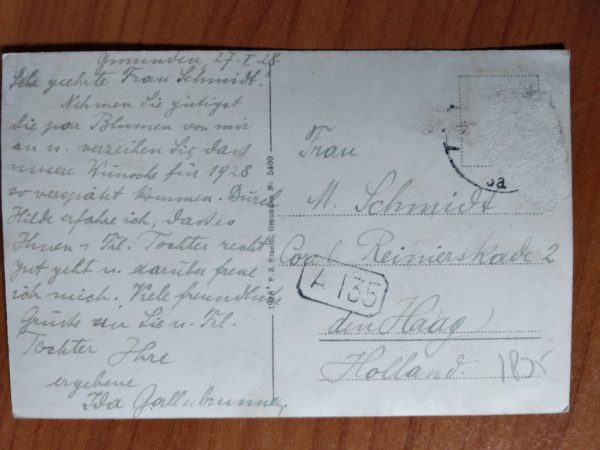 Gmunden, 27.I.28.
Sehr geehrte Frau Schmidt!
Nehmen Sie gütigst
die par Blumen von mir
an u. verzeihen Sie, dass
unsere Wünsche für 1928
so verspätet kommen. Durch
Hilde erfahre ich, dass es
Ihnen u. Frl. Tochter recht
gut geht u. darüber freue
ich mich. Viele freundliche
Grüße an Sie u. Frl.
Tochter Ihre
ergebene
Ida
1928 Brandt, Gmunden Nr. 5400
Frau
M. Schmidt
Reinierskade 2
A 135
den Haag
Holland.